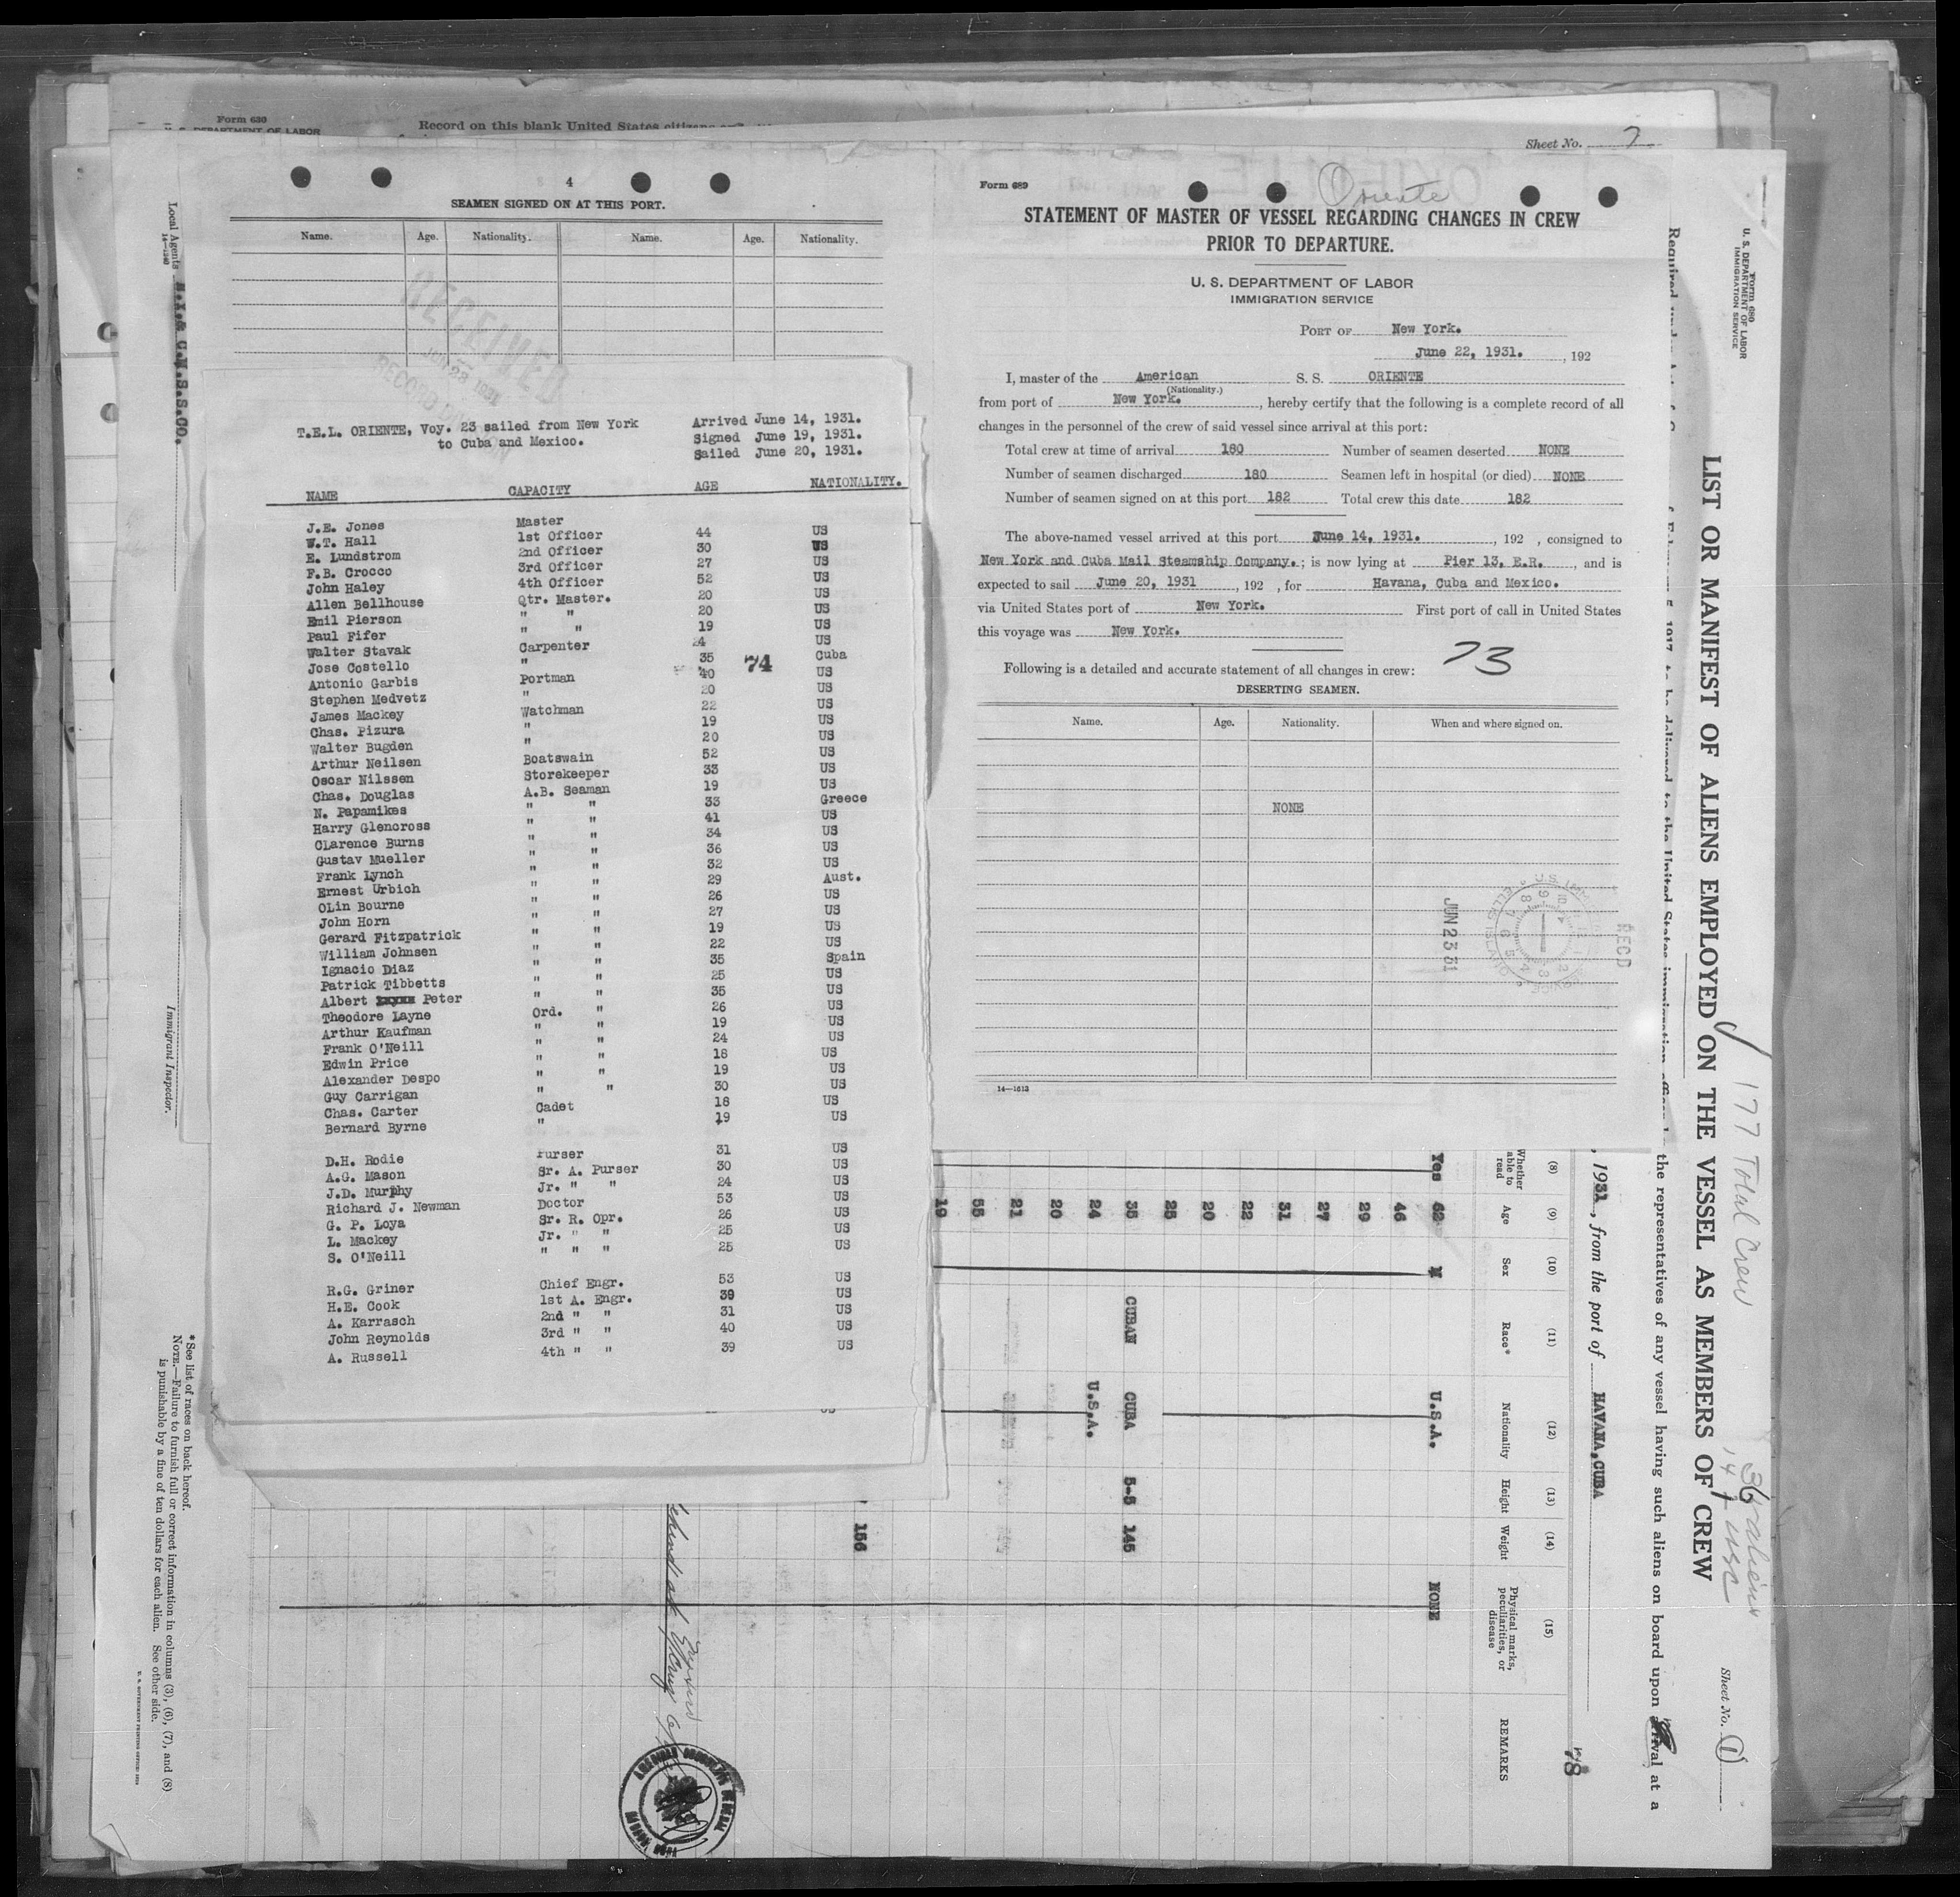 Form 630
U. S. DEPARTMENT OF LABOR
Record on this blank United States citizens
Sheet No. 7
4
SEAMEN SIGNED ON AT THIS PORT.
Name. Age. Nationality. Name. Age. Nationality.
RECEIVED
JUN 23 1931
T.E.L. ORIENTE, Voy. 23 sailed from New York
to Cuba and Mexico.
Arrived June 14, 1931.
Signed June 19, 1931.
Sailed June 20, 1931.
NAME CAPACITY AGE NATIONALITY.
J.E. Jones Master
W.T. Hall 1st Officer 44 US
E. Lundstrom 2nd Officer 30 US
F.B. Crocco 3rd Officer 27 US
John Haley 4th Officer 52 US
Allen Bellhouse Qtr. Master. 20 US
Emil Pierson " " 20 US
Paul Fifer " " 19 US
Walter Stavak Carpenter 24 US
Jose Costello " 35 Cuba
74
Antonio Garbis Portman 40 US
Stephen Medvetz " 20 US
James Mackey Watchman 22 US
Chas. Pizura " 19 US
Walter Bugden " 20 US
Arthur Neilsen Boatswain 52 US
Oscar Nilssen Storekeeper 33 US
Chas. Douglas A.B. Seaman 19 US
N. Papamikes " " 33 Greece
Harry Glencross " " 41 US
CLarence Burns " " 34 US
Gustav Mueller " " 36 US
Frank Lynch " " 32 US
Ernest Urbich " " 29 Aust.
OLin Bourne " " 26 US
John Horn " " 27 US
Gerard Fitzpatrick " " 19 US
William Johnsen " " 22 US
Ignacio Diaz " " 35 Spain
Patrick Tibbetts " " 25 US
Albert Peter " " 35 US
Theodore Layne Ord. " 26 US
Arthur Kaufman " " 19 US
Frank O'Neill " " 24 US
Edwin Price " " 18 US
Alexander Despo " " 19 US
Guy Carrigan " " 30 US
Chas. Carter Cadet 18 US
Bernard Byrne " 19 US
D.H. Rodie Purser 31 US
A.G. Mason Sr. A. Purser 30 US
J.D. Murphy Jr. " " 24 US
Richard J. Newman Doctor 53 US
G. P. Loya Sr. R. Opr. 26 US
L. Mackey Jr. " " 25 US
S. O'Neill " " " 25 US
R.G. Griner Chief Engr. 53 US
H.E. Cook 1st A. Engr. 39 US
A. Karrasch 2nd " " 31 US
John Reynolds 3rd " " 40 US
A. Russell 4th " " 39 US
Form 689
Oriente
STATEMENT OF MASTER OF VESSEL REGARDING CHANGES IN CREW
PRIOR TO DEPARTURE.
U. S. DEPARTMENT OF LABOR
IMMIGRATION SERVICE
PORT OF New York.
June 22, 1931. , 192
I, master of the American S. S. ORIENTE
(Nationality.)
from port of New York. , hereby certify that the following is a complete record of all
changes in the personnel of the crew of said vessel since arrival at this port:
Total crew at time of arrival 180 Number of seamen deserted NONE
Number of seamen discharged 180 Seamen left in hospital (or died) NONE
Number of seamen signed on at this port 182 Total crew this date 182
The above-named vessel arrived at this port June 14, 1931. , 192 , consigned to
New York and Cuba Mail Steamship Company. ; is now lying at Pier 13, E.R. , and is
expected to sail June 20, 1931 , 192 , for Havana, Cuba and Mexico.
via United States port of New York. First port of call in United States
this voyage was New York.
Following is a detailed and accurate statement of all changes in crew:
73
DESERTING SEAMEN.
Name. Age. Nationality. When and where signed on.
NONE
JUN 23 31
REC'D
14—1613
Form 680
U. S. DEPARTMENT OF LABOR
IMMIGRATION SERVICE
LIST OR MANIFEST OF ALIENS EMPLOYED ON THE VESSEL AS MEMBERS OF CREW
177 Total Crew
36 aliens
141 USC
Sheet No. 1
the representatives of any vessel having such aliens on board upon arrival at a
, 1931, from the port of HAVANA, CUBA
78
(8) (9) (10) (11) (12) (13) (14) (15)
Whether able to read Age Sex Race* Nationality Height Weight Physical marks, peculiarities, or disease REMARKS
Yes 62 M U.S.A. NONE
46
29
27
31
22
20
25
35 CUBAN CUBA 5-5 145
24 U.S.A.
20
21
55
19
156
Local Agents N.Y.& C.M.S.S.CO.
14—1240
Immigrant Inspector.
*See list of races on back hereof.
NOTE.—Failure to furnish full or correct information in columns (3), (6), (7), and (8)
is punishable by a fine of ten dollars for each alien. See other side.